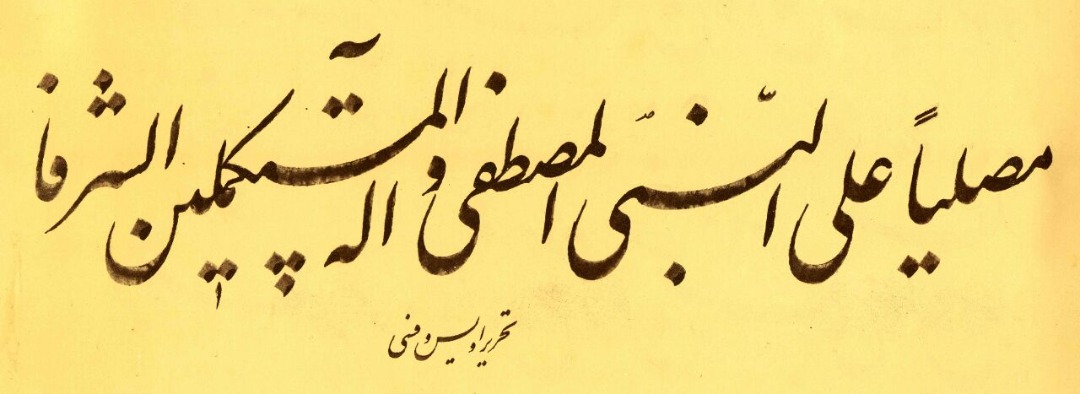 مصلياً على النّبي المصطفى وآله المستكملين الشرفا
تحریر اویس وفنی